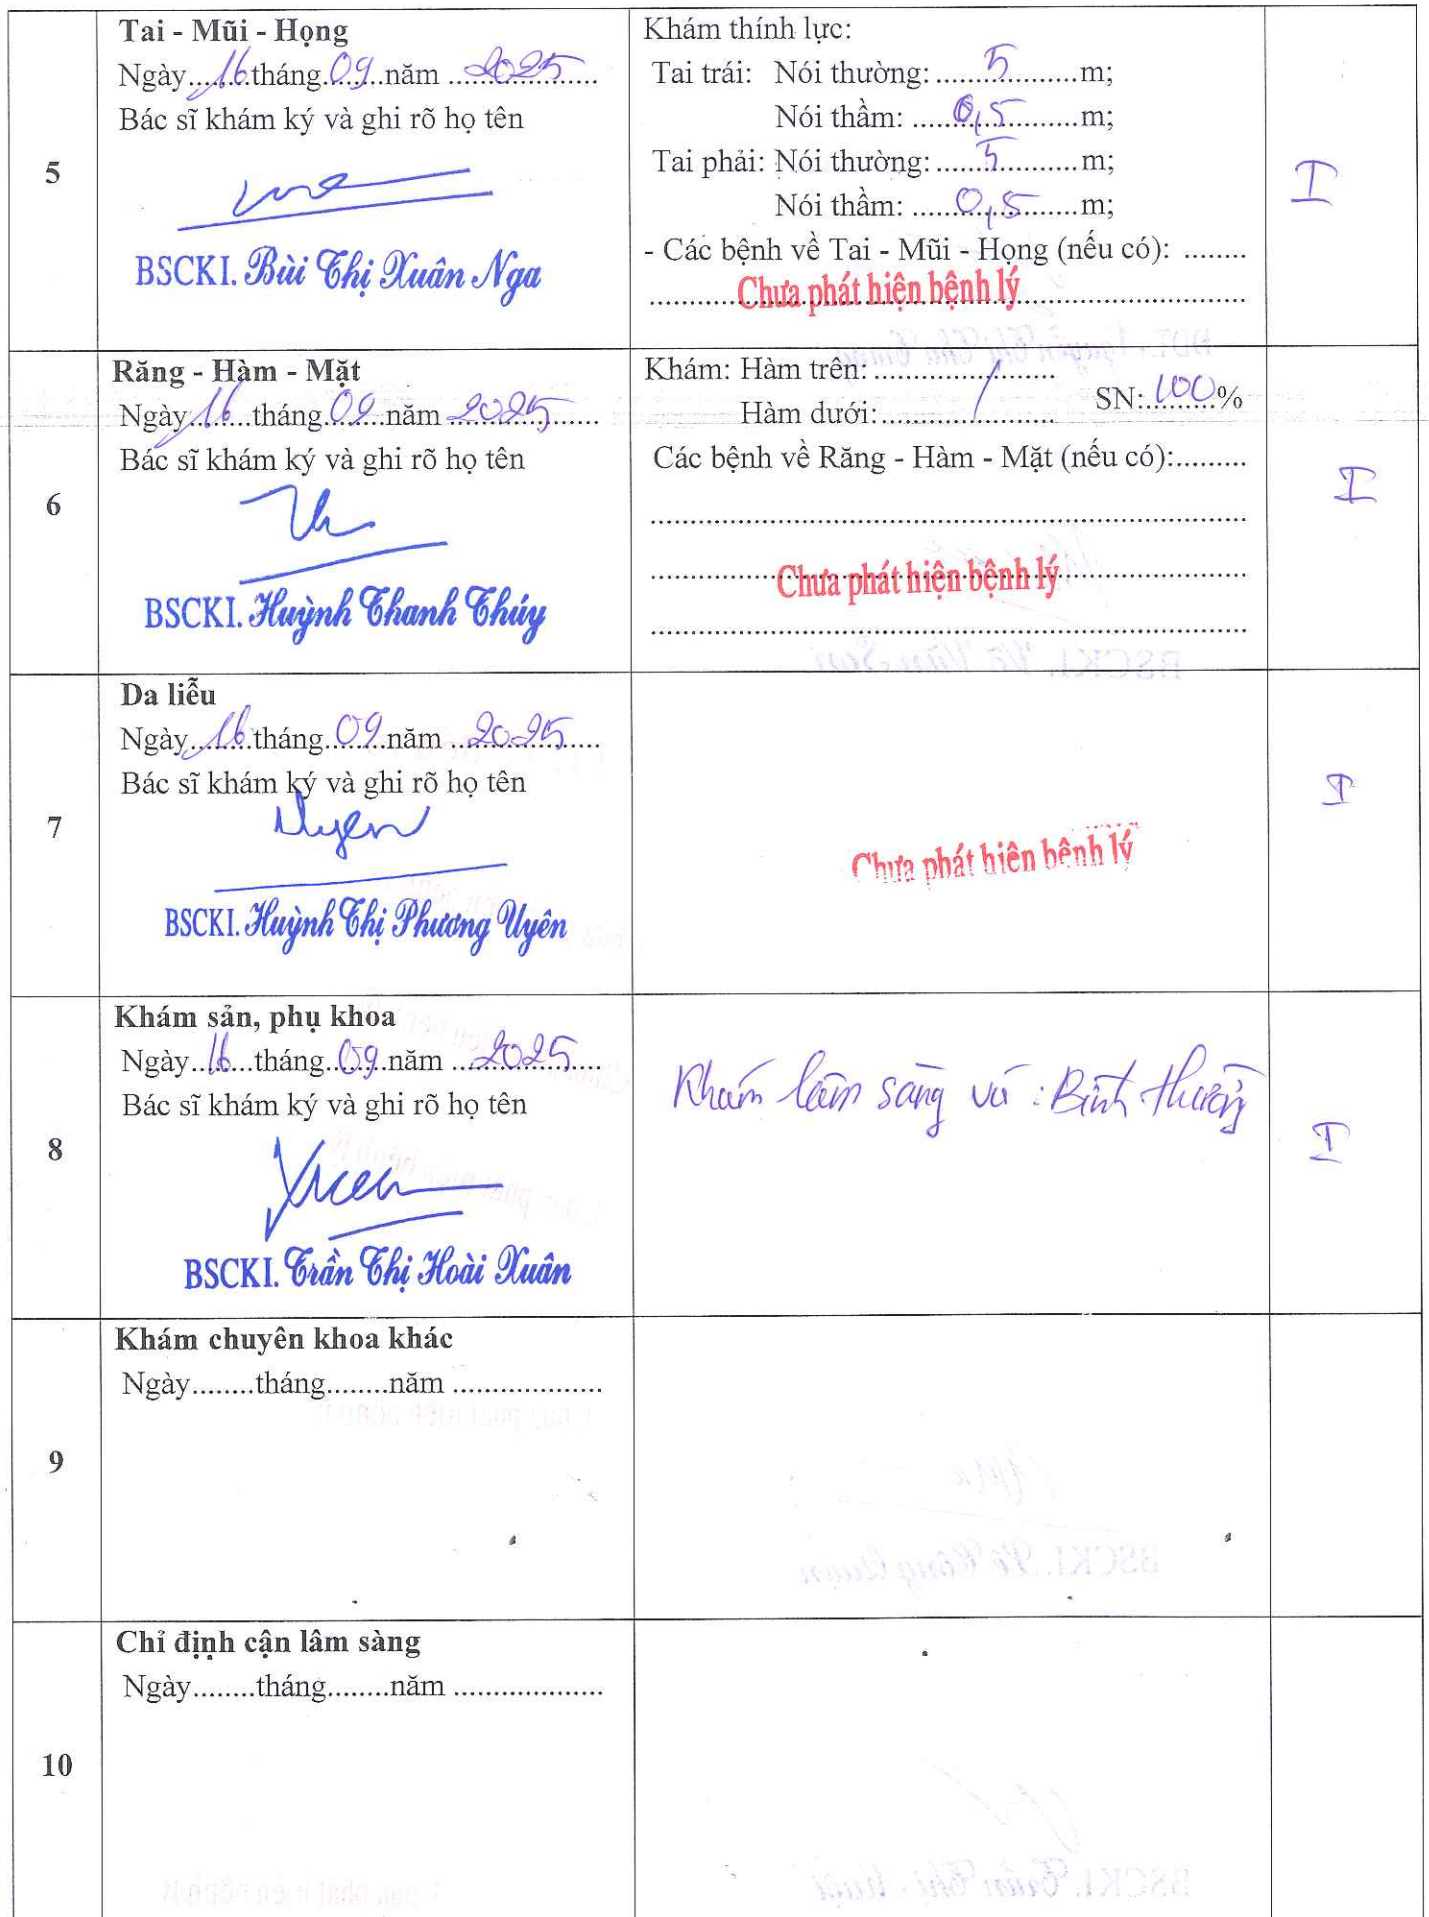 5
Tai - Mũi - Họng
Ngày....16.tháng.09..năm ....2025....
Bác sĩ khám ký và ghi rõ họ tên
BSCKI. Bùi Thị Xuân Nga
Khám thính lực:
Tai trái: Nói thường: ......5.........m;
Nói thầm: .....0,5.........m;
Tai phải: Nói thường: .....5..........m;
Nói thầm: .....0,5.........m;
- Các bệnh về Tai - Mũi - Họng (nếu có): ........
Chưa phát hiện bệnh lý
I
6
Răng - Hàm - Mặt
Ngày..16...tháng.09..năm ..2025......
Bác sĩ khám ký và ghi rõ họ tên
BSCKI. Huỳnh Thanh Thúy
Khám: Hàm trên: .......................
Hàm dưới: ......../.............. SN:.100.%
Các bệnh về Răng - Hàm - Mặt (nếu có):.........
Chưa phát hiện bệnh lý
I
7
Da liễu
Ngày...16..tháng.09..năm ..2025......
Bác sĩ khám ký và ghi rõ họ tên
Uyen
BSCKI. Huỳnh Thị Phương Uyên
Chưa phát hiện bệnh lý
I
8
Khám sản, phụ khoa
Ngày..16...tháng.09..năm ...2025.....
Bác sĩ khám ký và ghi rõ họ tên
BSCKI. Trần Thị Hoài Xuân
Khám lâm sàng vú : Bình thường
I
9
Khám chuyên khoa khác
Ngày........tháng........năm ...................
10
Chỉ định cận lâm sàng
Ngày........tháng........năm ...................